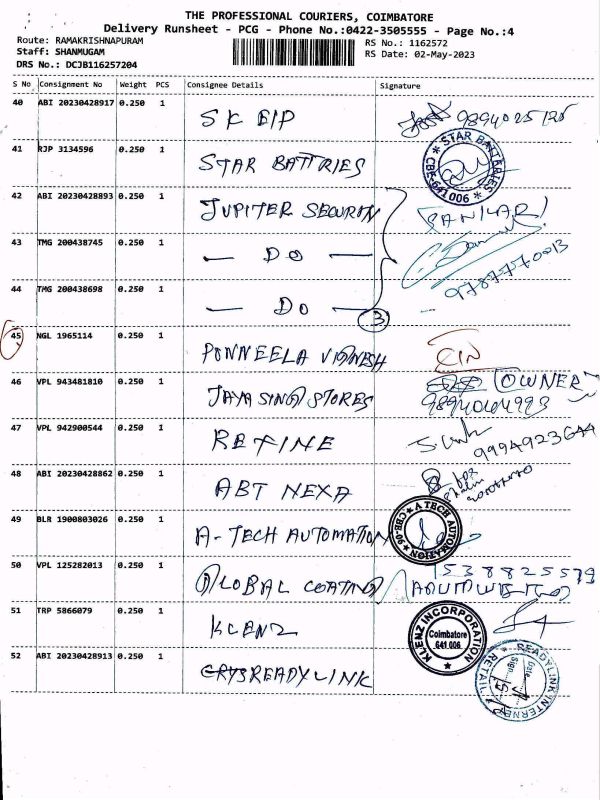 THE PROFESSIONAL COURIERS, COIMBATORE
Delivery Runsheet - PCG - Phone No.:0422-3505555 - Page No.:4
Route: RAMAKRISHNAPURAM
Staff: SHANMUGAM
DRS No.: DCJB116257204
RS No.: 1162572
RS Date: 02-May-2023
S No Consignment No Weight PCS Consignee Details Signature
40 ABI 20230428917 0.250 1 SK EIP
41 RJP 3134596 0.250 1 STAR BATTRIES
STAR BATTARIES CBE-641 006
42 ABI 20230428893 0.250 1 JUPITER SECURITY
43 TMG 200438745 0.250 1 — DO —
9787770013
44 TMG 200438698 0.250 1 — DO —
3
45 NGL 1965114 0.250 1 PONNEELA VIGNESH
46 VPL 943481810 0.250 1 JAYASING STORES OWNER
47 VPL 942900544 0.250 1 REFINE 9994923644
48 ABI 20230428862 0.250 1 ABT NEXA
49 BLR 1900803026 0.250 1 A-TECH AUTOMATION
A TECH AUTOMATION
50 VPL 125282013 0.250 1 GLOBAL COATING 1538825579
51 TRP 5866079 0.250 1 KLENZ
KLENZ INCORPORATION Coimbatore 641 006.
52 ABI 20230428913 0.250 1 READYLINK
READYLINK INTERNET RETAIL Date Sign